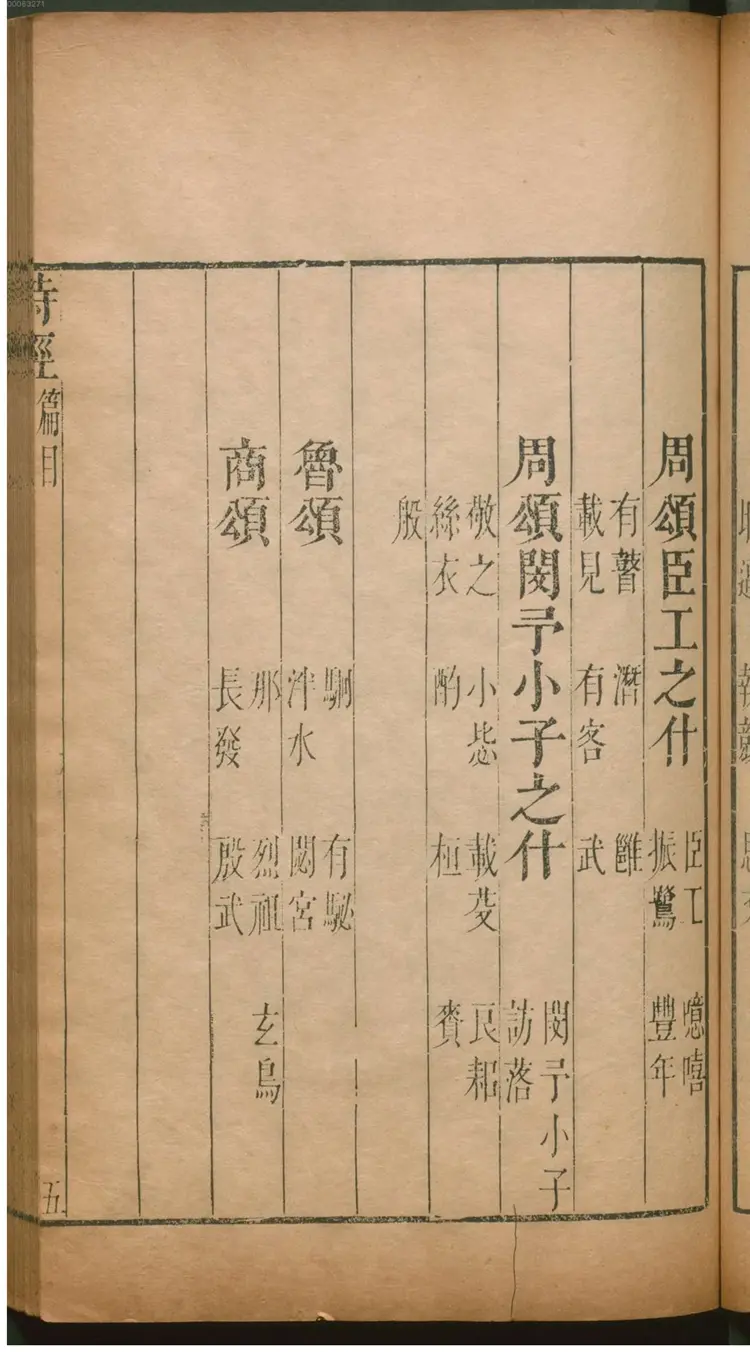 周頌臣工之什
臣工 噫嘻
振鷺 豐年
有瞽 潛 雝
載見 有客 武
周頌閔予小子之什
閔予小子
訪落
敬之 小毖 載芟 良耜
絲衣 酌 桓 賚
般
魯頌
駉 有駜
泮水 閟宮
商頌
那 烈祖 玄鳥
長發 殷武
詩經 篇目 五